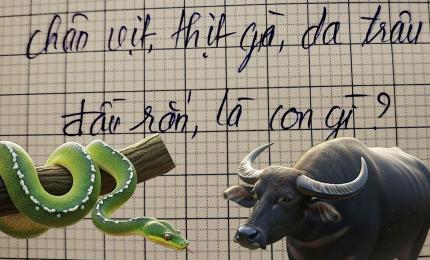 chân vịt, thịt gà, da trâu
đầu rắn, là con gì?